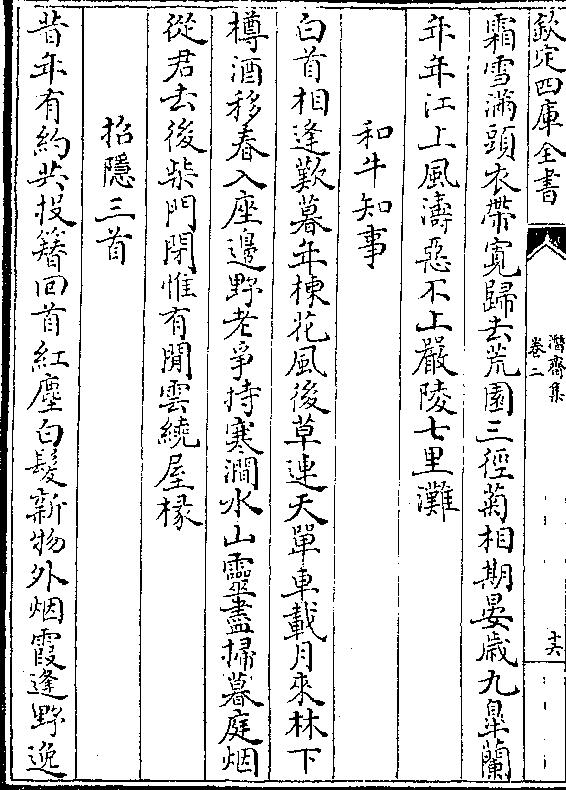 欽定四庫全書
潛齋集
卷二
十六
霜雪滿頭衣帶寬歸去荒園三徑菊相期晏歲九臯蘭
年年江上風濤惡不上嚴陵七里灘
和牛知事
白首相逢歎暮年楝花風後草連天單車載月來林下
樽酒移春入座邊野老爭持寒澗水山靈盡掃暮庭烟
從君去後柴門閉惟有閒雲繞屋椽
招隱三首
昔年有約共投簪回首紅塵白髮新物外烟霞逢野逸